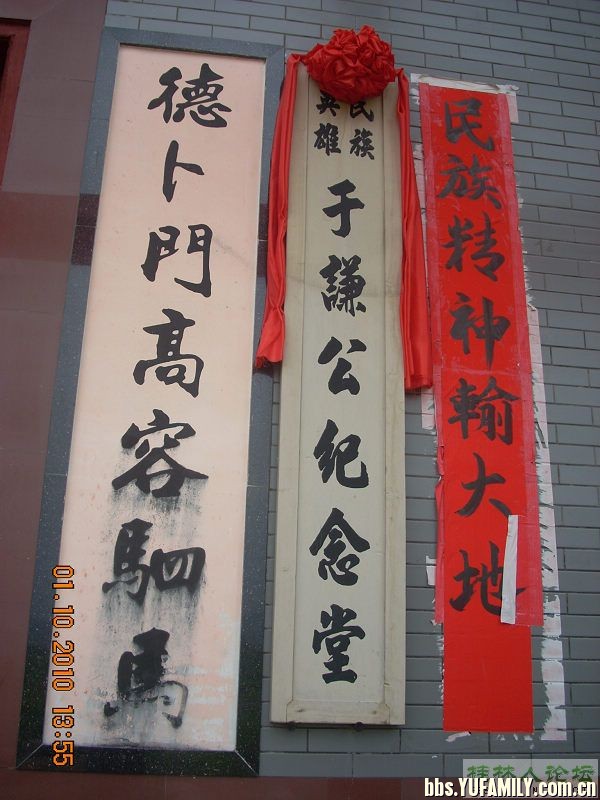 民族精神輸大地
民族
英雄
于謙公紀念堂
德卜門高容駟馬
01.10.2010 13:55
桂林人论坛
bbs.YUFAMILY.com.cn